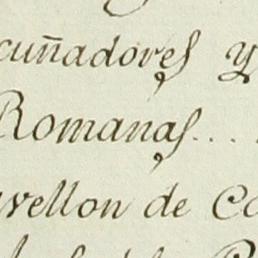 cuñadores y
Romanas....
vellon de